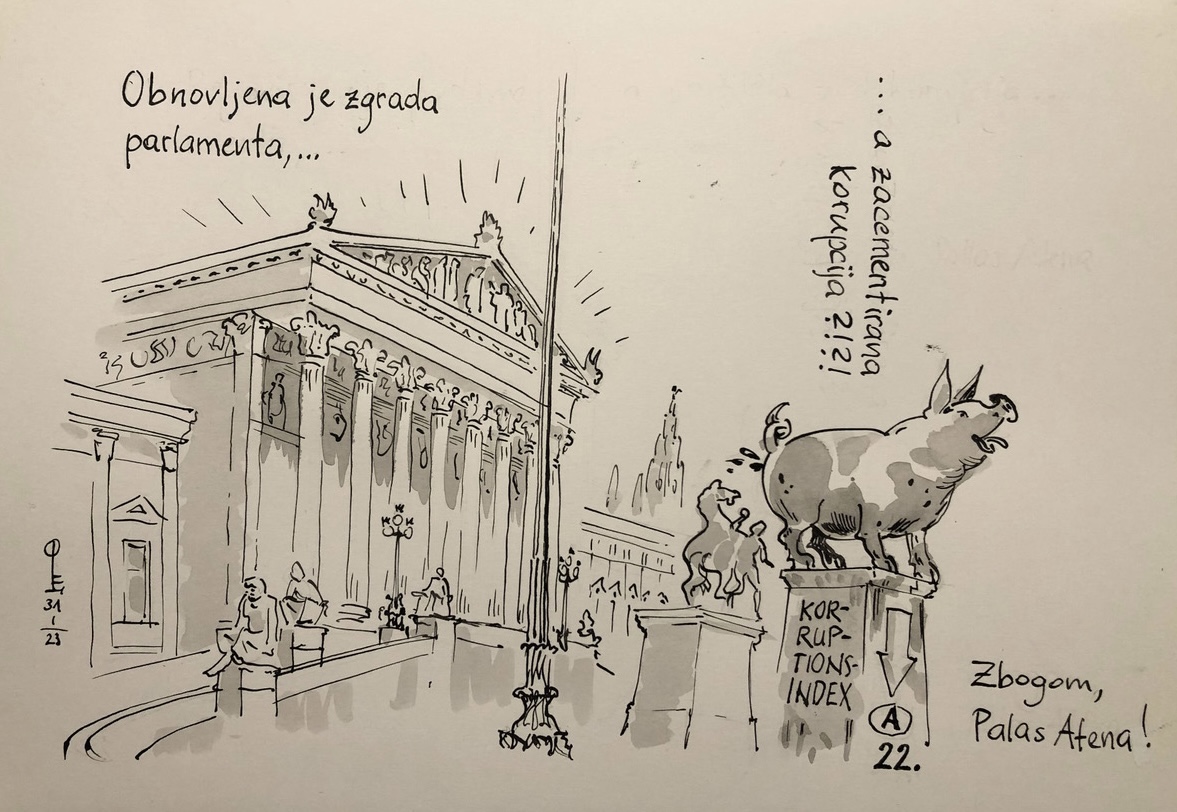 Obnovljena je zgrada
parlamenta,...
... a zacementirana
korupcija ?!?!
KOR-
RUP-
TIONS-
INDEX
A
22.
Zbogom,
Palas Atena!
31
1
23